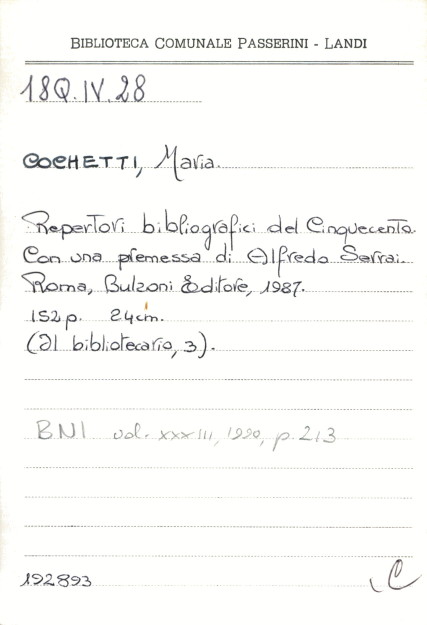 BIBLIOTECA COMUNALE PASSERINI - LANDI
18Q.IV.28
COCHETTI, Maria.
Repertori bibliografici del Cinquecento.
Con una premessa di Alfredo Serrai.
Roma, Bulzoni Editore, 1987.
152 p. 24 cm.
(Il bibliotecario, 3).
BNI vol. XXXIII, 1990, p. 213
192893
C